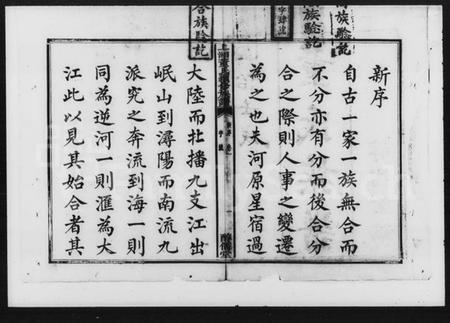 新序
自古一家一族無合而
不分亦有分而後合分
合之際則人事之變遷
為之也夫河原星宿過
大陸而北播九支江出
岷山到潯陽而南流九
派究之奔流到海一則
同為逆河一則滙為大
江此以見其始合者其
合族驗訖
族驗訖